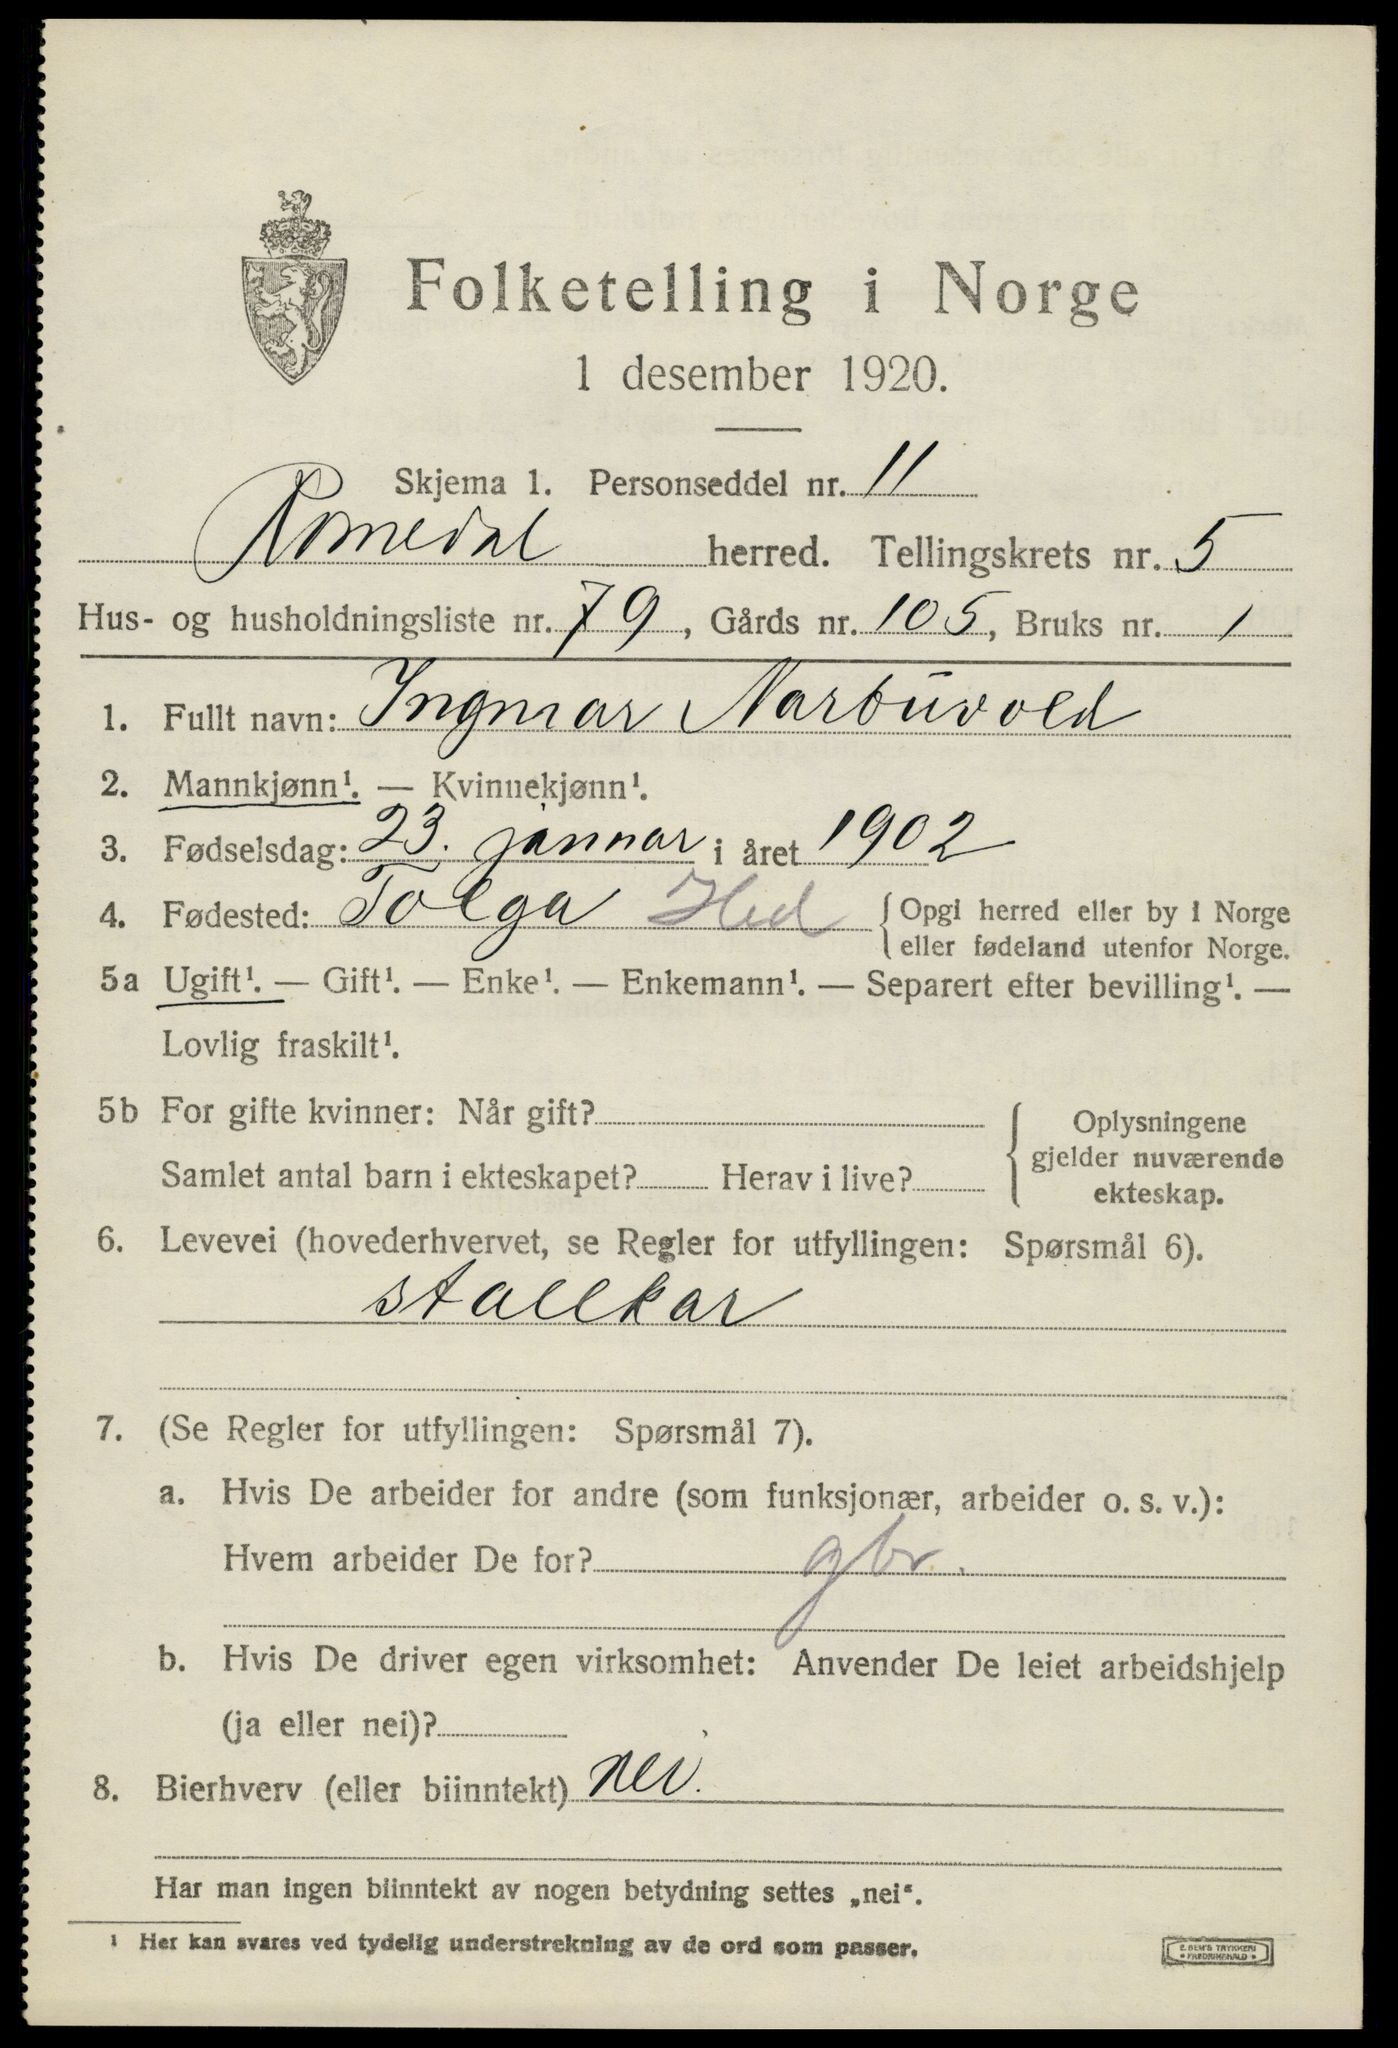 Folketelling i Norge
1 desember 1920.
Skjema 1. Personseddel nr. 11
Romedal herred. Tellingskrets nr. 5
Hus- og husholdningsliste nr. 79, Gårds nr. 105, Bruks nr. 1
1. Fullt navn: Ingmar Narbuvold
2. Mannkjønn¹. — Kvinnekjønn¹.
3. Fødselsdag: 23. januar i året 1902
4. Fødested: Tolga Hed { Opgi herred eller by i Norge
eller fødeland utenfor Norge.
5a Ugift¹. — Gift¹. — Enke¹. — Enkemann¹. — Separert efter bevilling¹. —
Lovlig fraskilt¹.
5b For gifte kvinner: Når gift?
Samlet antal barn i ekteskapet? Herav i live?
{ Oplysningene
gjelder nuværende
ekteskap.
6. Levevei (hovederhvervet, se Regler for utfyllingen: Spørsmål 6).
stallkar
7. (Se Regler for utfyllingen: Spørsmål 7).
a. Hvis De arbeider for andre (som funksjonær, arbeider o. s. v.):
Hvem arbeider De for? gbr.
b. Hvis De driver egen virksomhet: Anvender De leiet arbeidshjelp
(ja eller nei)?
8. Bierhverv (eller biinntekt) nei.
Har man ingen biinntekt av nogen betydning settes „nei“.
¹ Her kan svares ved tydelig understrekning av de ord som passer.
E. SEM'S TRYKKERI
• FREDRIKSHALD •